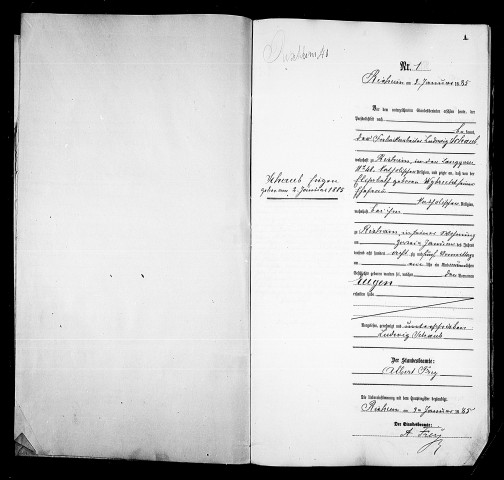 1
Nr. 1
Rixheim am 2. Januar 1885
Vor dem unterzeichneten Standesbeamten erschien heute, der
Persönlichkeit nach
bekannt,
der Fabrikarbeiter Ludwig Schaub
zu Rixheim, in der Langgasse
Nr 41, katholischer Religion, und zeigte an, daß von der
geborenen
Ehefrau
katholischer Religion,
wohnhaft bei ihm
zu Rixheim, in seiner Wohnung
am zweiten Januar des Jahres
tausend acht hundert achtzig und fünf Vormittags
um ein Uhr ein Kind männlichen
Geschlechts geboren worden sei, welches den Vornamen
Eugen
erhalten habe
Schaub Eugen
geboren 2. Januar 1885
Vorgelesen, genehmigt und unterschrieben
Ludwig Schaub
Der Standesbeamte:
Albert Frey
Die Uebereinstimmung mit dem Hauptregister beglaubigt.
Rixheim am 2. Januar 1885
Der Standesbeamte:
A. Frey